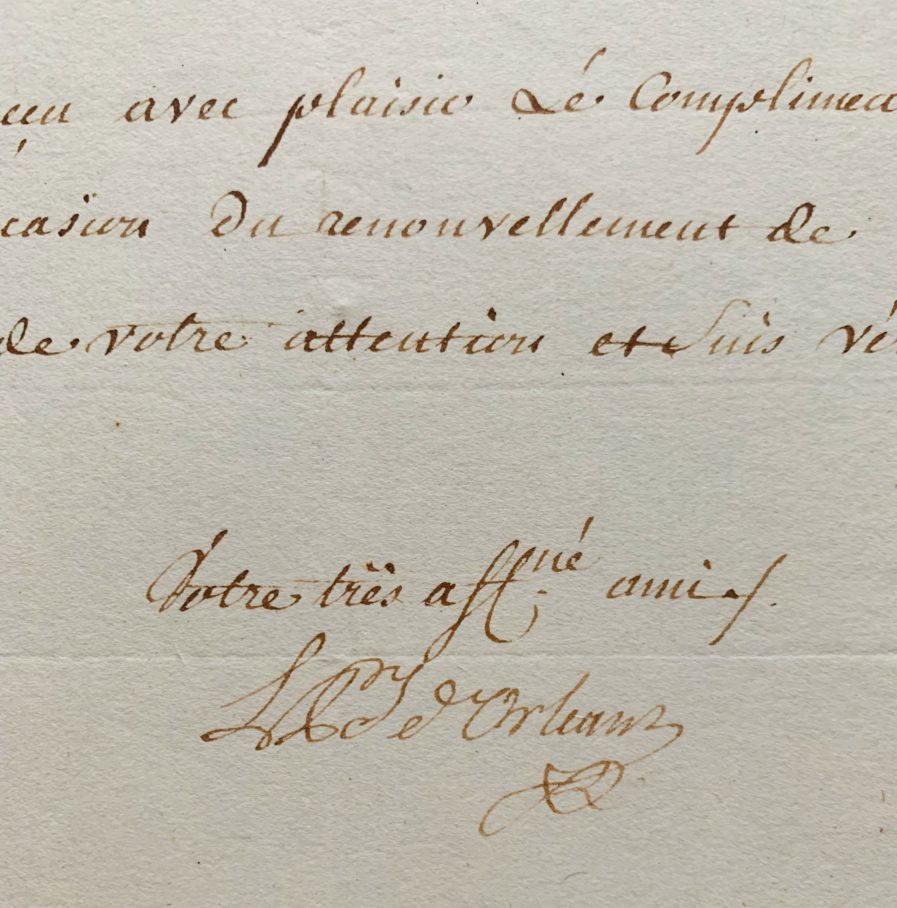 çu avec plaisir Lé Complimen
casion Du renouvellement de
de votre attention et suis vé
Votre très aff.né ami
d'Orleans